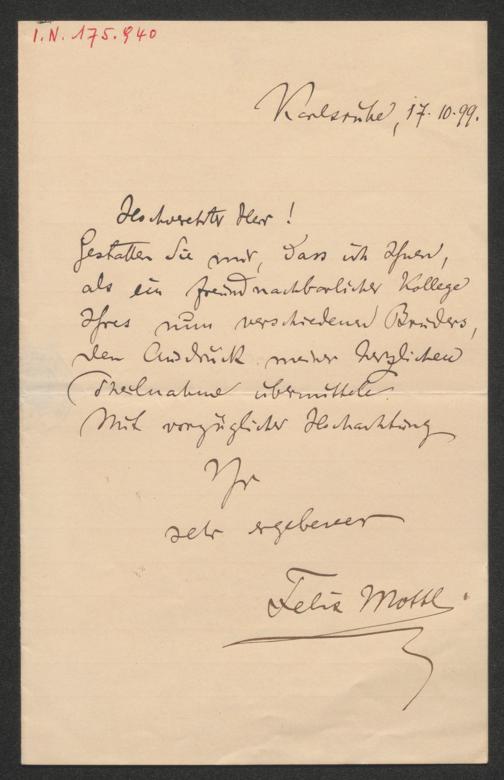 I.N. 175.940
Karlsruhe, 17.10.99.
Hochverehrter Herr!
Gestatten Sie mir, dass ich Ihnen,
als ein freundnachbarlicher Kollege
Ihres nun verschiedenen Bruders,
den Ausdruck meiner herzlichen
Theilnahme übermittele.
Mit vorzüglicher Hochachtung
Ihr
sehr ergebener
Felix Mottl.